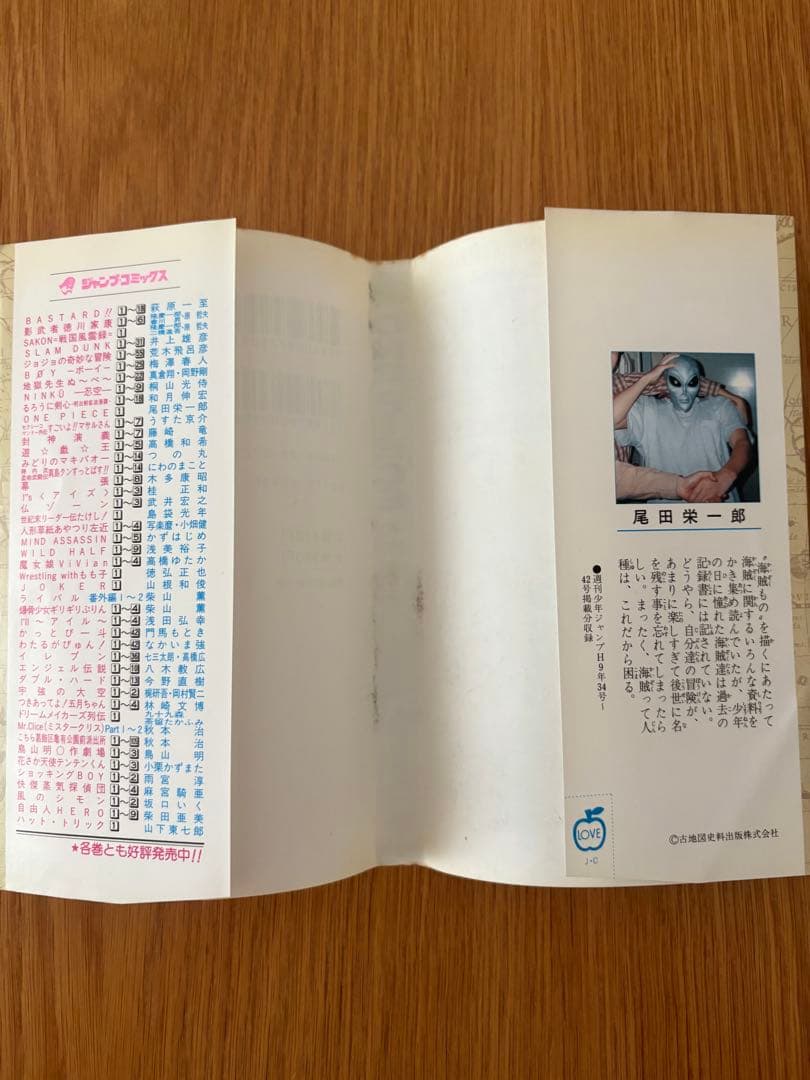 ジャンプコミックス
BASTARD!! 1~18 萩原一至
影武者徳川家康 1~6 隆慶一郎・原哲夫
SAKON=戦国風雲録= 1
SLAM DUNK 1~31 井上雄彦
ジョジョの奇妙な冒険 1~55 荒木飛呂彦
BØY —ボーイ— 梅澤春人
地獄先生ぬ〜べ〜 真倉翔・岡野剛
NINKŪ —忍空— 1~9 桐山光侍
るろうに剣心 1~18 和月伸宏
ONE PIECE 1 尾田栄一郎
すごいよ!!マサルさん 1~7 うすた京介
封神演義 1~7 藤崎竜
遊☆戯☆王 1~5 高橋和希
みどりのマキバオー 1~14 つの丸
真島クンすっとばす!! 1~14 にわのまこと
幕張 1~6 木多康昭
I"s〈アイズ〉 1~3 桂正和
仏ゾーン 1~3 武井宏之
世紀末リーダー伝たけし! 1 島袋光年
人形草紙あやつり左近 1~4 写楽麿・小畑健
MIND ASSASSIN 1~5 かずはじめ
WILD HALF 1~9 浅美裕子
魔女娘ViVian 1~4 高橋ゆたか
Wrestling withもも子 1 徳弘正也
JOKER 1 山根和俊
ライバル 番外編1~2 柴山薫
爆骨少女ギリギリぷりん 1~4 柴山薫
I'll〜アイル〜 1~4 浅田弘幸
かっとび一斗 門馬もとき
わたるがぴゅん! なかいま強
イレブン 七三太朗・高橋広
エンジェル伝説 八木教広
ダブル・ハード 1~13 今野直樹
宇強の大空 1~2 梶研吾・岡村賢二
つきあってよ!五月ちゃん 1~4 林崎文博
ドリームメイカーズ列伝 1 九十九森 茶留たかふみ
Mr.Clice(ミスタークリス) Part1~2 秋本治
こちら葛飾区亀有公園前派出所 秋本治
鳥山明〇作劇場 1~3 鳥山明
花さか天使テンテンくん 1~3 小栗かずまた
ショッキングBOY 1~2 雨宮淳
快傑蒸気探偵団 1~4 麻宮騎亜
風のシモン 1~2 坂口いく
自由人HERO 1~9 柴田亜美
ハット・トリック 1 山下東七郎
★各巻とも好評発売中!!
尾田栄一郎
"海賊もの"を描くにあたって
海賊に関するいろんな資料を
かき集め読んでいたが、少年
の日に憧れた海賊達は過去の
記録書には記されていない。
どうやら、自分達の冒険が、
あまりに楽しすぎて後世に名
を残す事を忘れてしまったら
しい。まったく、海賊って人
種は、これだから困る。
●週刊少年ジャンプH9年34号~
42号掲載分収録
LOVE
J・C
©古地図史料出版株式会社